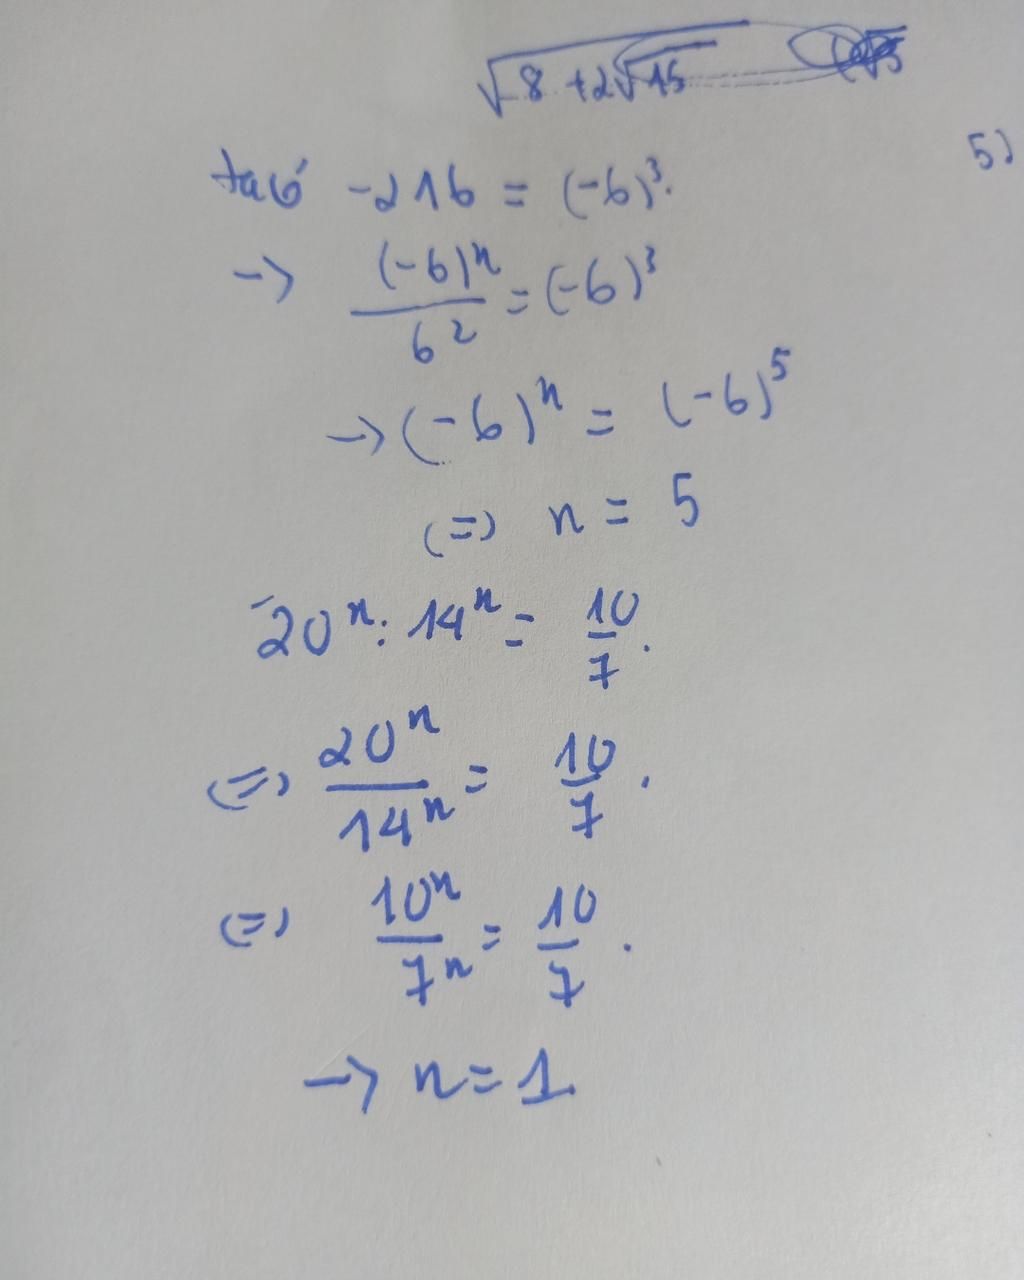 √8 + 2√15 (√5
5)
ta có -216 = (-6)³.
→ (-6)ⁿ/6² = (-6)³
→ (-6)ⁿ = (-6)⁵
(=) n = 5
- 20ⁿ : 14ⁿ = 10/7.
(=) 20ⁿ/14ⁿ = 10/7.
(=) 10ⁿ/7ⁿ = 10/7.
→ n = 1